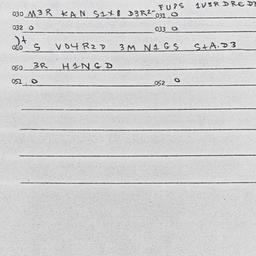 030 M3R KAN S1X8 D3R2- 031 0 FUPS 1U3R DRED3
032 0 033 0
040 S VO4R2D 3M N1GS StA.D3
050 3R H1NGD
051 0 052 0